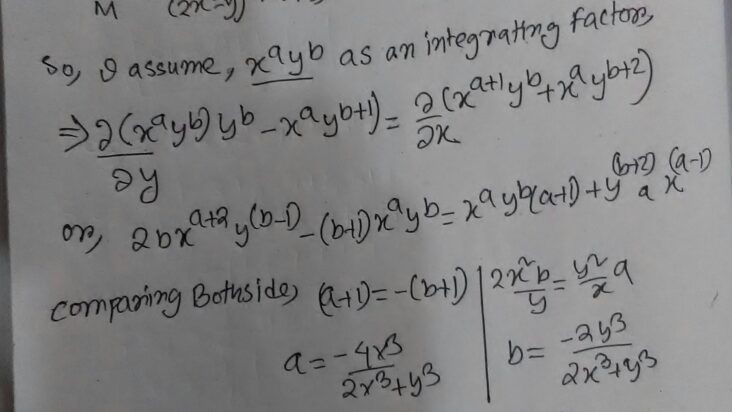 M (2x-y)
So, I assume, x^a y^b as an integrating factor,
⇒ ∂(x^a y^b) y^b - x^a y^(b+1)) / ∂y = ∂/∂x (x^(a+1) y^b + x^a y^(b+2))
or, 2bx^(a+2) y^(b-1) - (b+1)x^a y^b = x^a y^b(a+1) + y^(b+2) a x^(a-1)
Comparing Bothside, (a+1) = -(b+1) | 2x²b/y = y²/x a
a = -4x³/(2x³+y³) | b = -2y³/(2x³+y³)